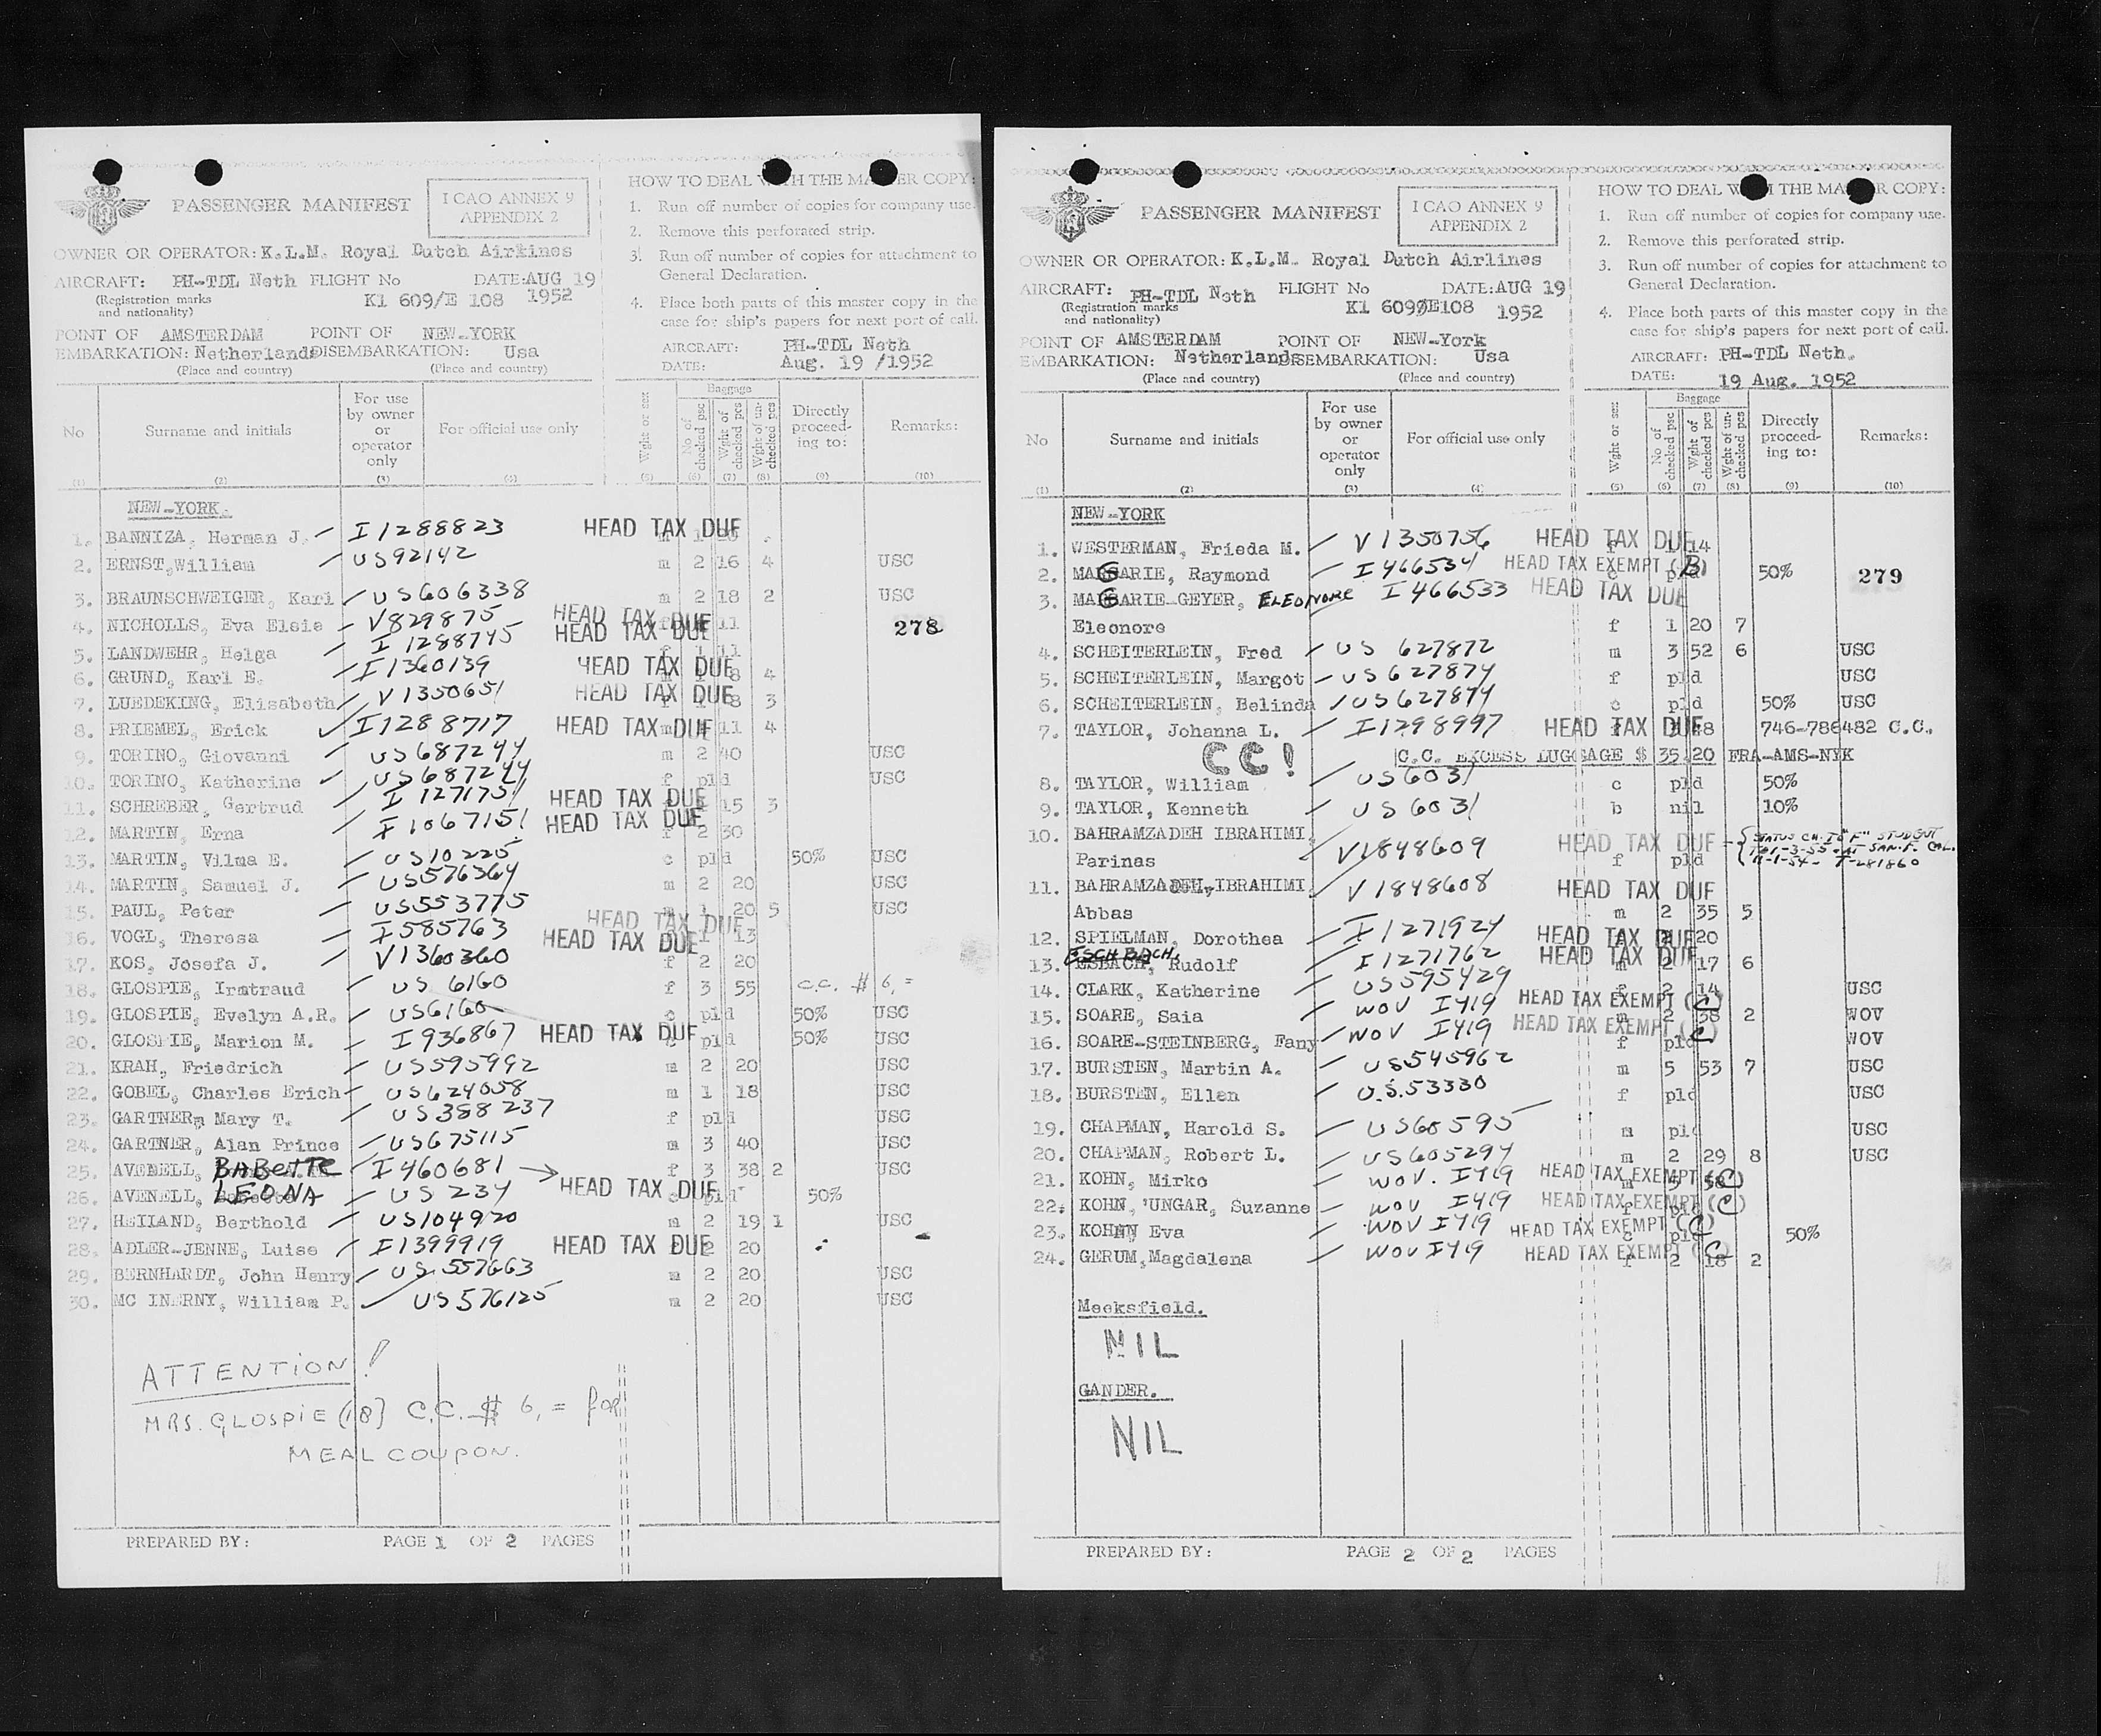 PASSENGER MANIFEST
I CAO ANNEX 9
APPENDIX 2
OWNER OR OPERATOR: K.L.M. Royal Dutch Airlines
AIRCRAFT: PH-TDL Neth FLIGHT No DATE: AUG 19
(Registration marks
and nationality)
Kl 609/E 108 1952
POINT OF AMSTERDAM POINT OF NEW-YORK
EMBARKATION: Netherlands DISEMBARKATION: Usa
(Place and country) (Place and country)
HOW TO DEAL WITH THE MASTER COPY:
1. Run off number of copies for company use.
2. Remove this perforated strip.
3. Run off number of copies for attachment to
General Declaration.
4. Place both parts of this master copy in the
case for ship's papers for next port of call.
AIRCRAFT: PH-TDL Neth
DATE: Aug. 19 /1952
No Surname and initials For use by owner or operator only For official use only Wght or sex Baggage No of checked psc Wght of checked pcs Wght of un-checked pcs Directly proceed-ing to: Remarks:
(1) (2) (3) (4) (5) (6) (7) (8) (9) (10)
NEW-YORK.
1. BANNIZA, Herman J. I1288823 HEAD TAX DUE
2. ERNST, William US92142 m 2 16 4 USC
3. BRAUNSCHWEIGER, Karl US606338 m 2 18 2 USC
4. NICHOLLS, Eva Elsie V829875 HEAD TAX DUE 11
278
5. LANDWEHR, Helga I 1288745 HEAD TAX DUE f 1 11
6. GRUND, Karl E. I1360139 HEAD TAX DUE 8 4
7. LUEDEKING, Elisabeth V1350651 HEAD TAX DUE 8 3
8. PRIEMEL, Erick I1288717 HEAD TAX DUE m 11 4
9. TORINO, Giovanni US687244 m 2 40 USC
10. TORINO, Katherine US687244 f pld USC
11. SCHREBER, Gertrud I 1271751 HEAD TAX DUE 15 3
12. MARTIN, Erna I1067151 HEAD TAX DUE f 2 30
13. MARTIN, Vilma E. US10225 c pld 50% USC
14. MARTIN, Samuel J. US576364 m 2 20 USC
15. PAUL, Peter US553775 m 1 20 5 USC
16. VOGL, Theresa I585763 HEAD TAX DUE 1 13
17. KOS, Josefa J. V1360360 HEAD TAX DUE f 2 20
18. GLOSPIE, Irmtraud US 6160 f 3 55 C.C. $ 6,=
19. GLOSPIE, Evelyn A.R. US6160 c pld 50% USC
20. GLOSPIE, Marion M. I936867 HEAD TAX DUE pld 50% USC
21. KRAH, Friedrich US595992 m 2 20 USC
22. GOBEL, Charles Erich US624058 m 1 18 USC
23. GARTNER, Mary T. US388237 f pld USC
24. GARTNER, Alan Prince US675115 m 3 40 USC
25. AVENELL, BABETTE I460681 f 3 38 2 USC
26. AVENELL, LEONA US 234 HEAD TAX DUE pld 50%
27. HEILAND, Berthold US104920 m 2 19 1 USC
28. ADLER-JENNE, Luise I1399919 HEAD TAX DUE 2 20
29. BERNHARDT, John Henry US 557663 m 2 20 USC
30. MC INERNY, William P. US576125 m 2 20 USC
ATTENTION!
MRS. GLOSPIE (18) C.C. $ 6,= for
MEAL COUPON.
PREPARED BY: PAGE 1 OF 2 PAGES
PASSENGER MANIFEST
I CAO ANNEX 9
APPENDIX 2
OWNER OR OPERATOR: K.L.M. Royal Dutch Airlines
AIRCRAFT: PH-TDL Neth FLIGHT No DATE: AUG 19
(Registration marks
and nationality)
Kl 609/E108 1952
POINT OF AMSTERDAM POINT OF NEW-York
EMBARKATION: Netherlands DISEMBARKATION: Usa
(Place and country) (Place and country)
HOW TO DEAL WITH THE MASTER COPY:
1. Run off number of copies for company use.
2. Remove this perforated strip.
3. Run off number of copies for attachment to
General Declaration.
4. Place both parts of this master copy in the
case for ship's papers for next port of call.
AIRCRAFT: PH-TDL Neth.
DATE: 19 Aug. 1952
No Surname and initials For use by owner or operator only For official use only Wght or sex Baggage No of checked psc Wght of checked pcs Wght of un-checked pcs Directly proceed-ing to: Remarks:
(1) (2) (3) (4) (5) (6) (7) (8) (9) (10)
NEW-YORK
1. WESTERMAN, Frieda M. V1350756 HEAD TAX DUE 14
2. MAGSARIE, Raymond I466534 HEAD TAX EXEMPT (B) 50%
279
3. MAGSARIE-GEYER, ELEONORE I466533 HEAD TAX DUE
Eleonore f 1 20 7
4. SCHEITERLEIN, Fred US 627872 m 3 52 6 USC
5. SCHEITERLEIN, Margot US627874 f pld USC
6. SCHEITERLEIN, Belinda US627874 c pld 50% USC
7. TAYLOR, Johanna L. I1298997 HEAD TAX DUE 48 746-786482 C.C.
CC! C.C. EXCESS LUGGAGE $ 35.20 FRA-AMS-NYK
8. TAYLOR, William US6031 c pld 50%
9. TAYLOR, Kenneth US6031 b nil 10%
10. BAHRAMZADEH IBRAHIMI,
Parinas V1848609 HEAD TAX DUE f pld STATUS CH. TO "F" STUDENT
11. BAHRAMZADEH, IBRAHIMI, V1848608 HEAD TAX DUE
Abbas m 2 35 5
12. SPIELMAN, Dorothea I1271924 HEAD TAX DUE 20
ESCHBACH,
13. ESBACH, Rudolf I1271762 HEAD TAX DUE 2 17 6
14. CLARK, Katherine US595429 f 2 14 USC
15. SOARE, Saia WOV I419 HEAD TAX EXEMPT (C) m 2 38 2 WOV
16. SOARE-STEINBERG, Fany WOV I419 HEAD TAX EXEMPT (C) f pld WOV
17. BURSTEN, Martin A. US545962 m 5 53 7 USC
18. BURSTEN, Ellen U.S.53330 f pld USC
19. CHAPMAN, Harold S. US60595 m pld USC
20. CHAPMAN, Robert L. US605294 m 2 29 8 USC
21. KOHN, Mirko WOV. I419 HEAD TAX EXEMPT (C) m 5 58
22. KOHN, UNGAR, Suzanne WOV I419 HEAD TAX EXEMPT (C) f pld
23. KOHN Eva WOV I419 HEAD TAX EXEMPT (C) c pld 50%
24. GERUM, Magdalena WOV I419 HEAD TAX EXEMPT (C) f 2 18 2
Meeksfield.
NIL
GANDER.
NIL
PREPARED BY: PAGE 2 OF 2 PAGES